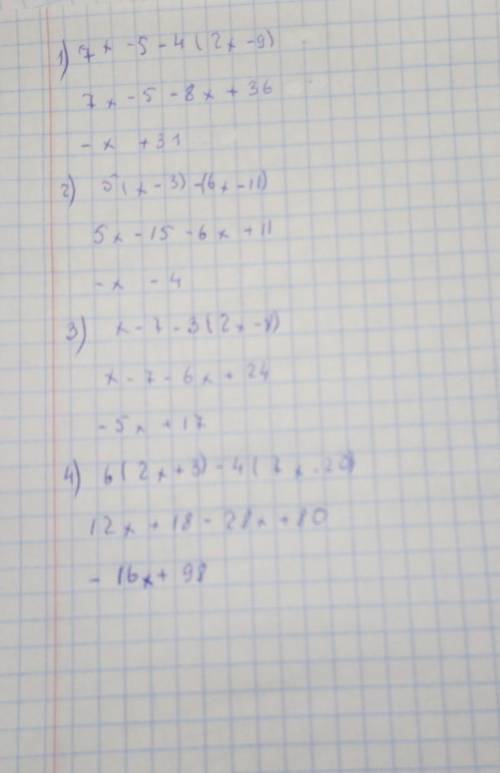 1) 7x - 5 - 4(2x - 9)
7x - 5 - 8x + 36
- x + 31
2) 5(x - 3) - (6x - 11)
5x - 15 - 6x + 11
- x - 4
3) x - 7 - 3(2x - 8)
x - 7 - 6x + 24
- 5x + 17
4) 6(2x + 3) - 4(7x - 20)
12x + 18 - 28x + 80
- 16x + 98